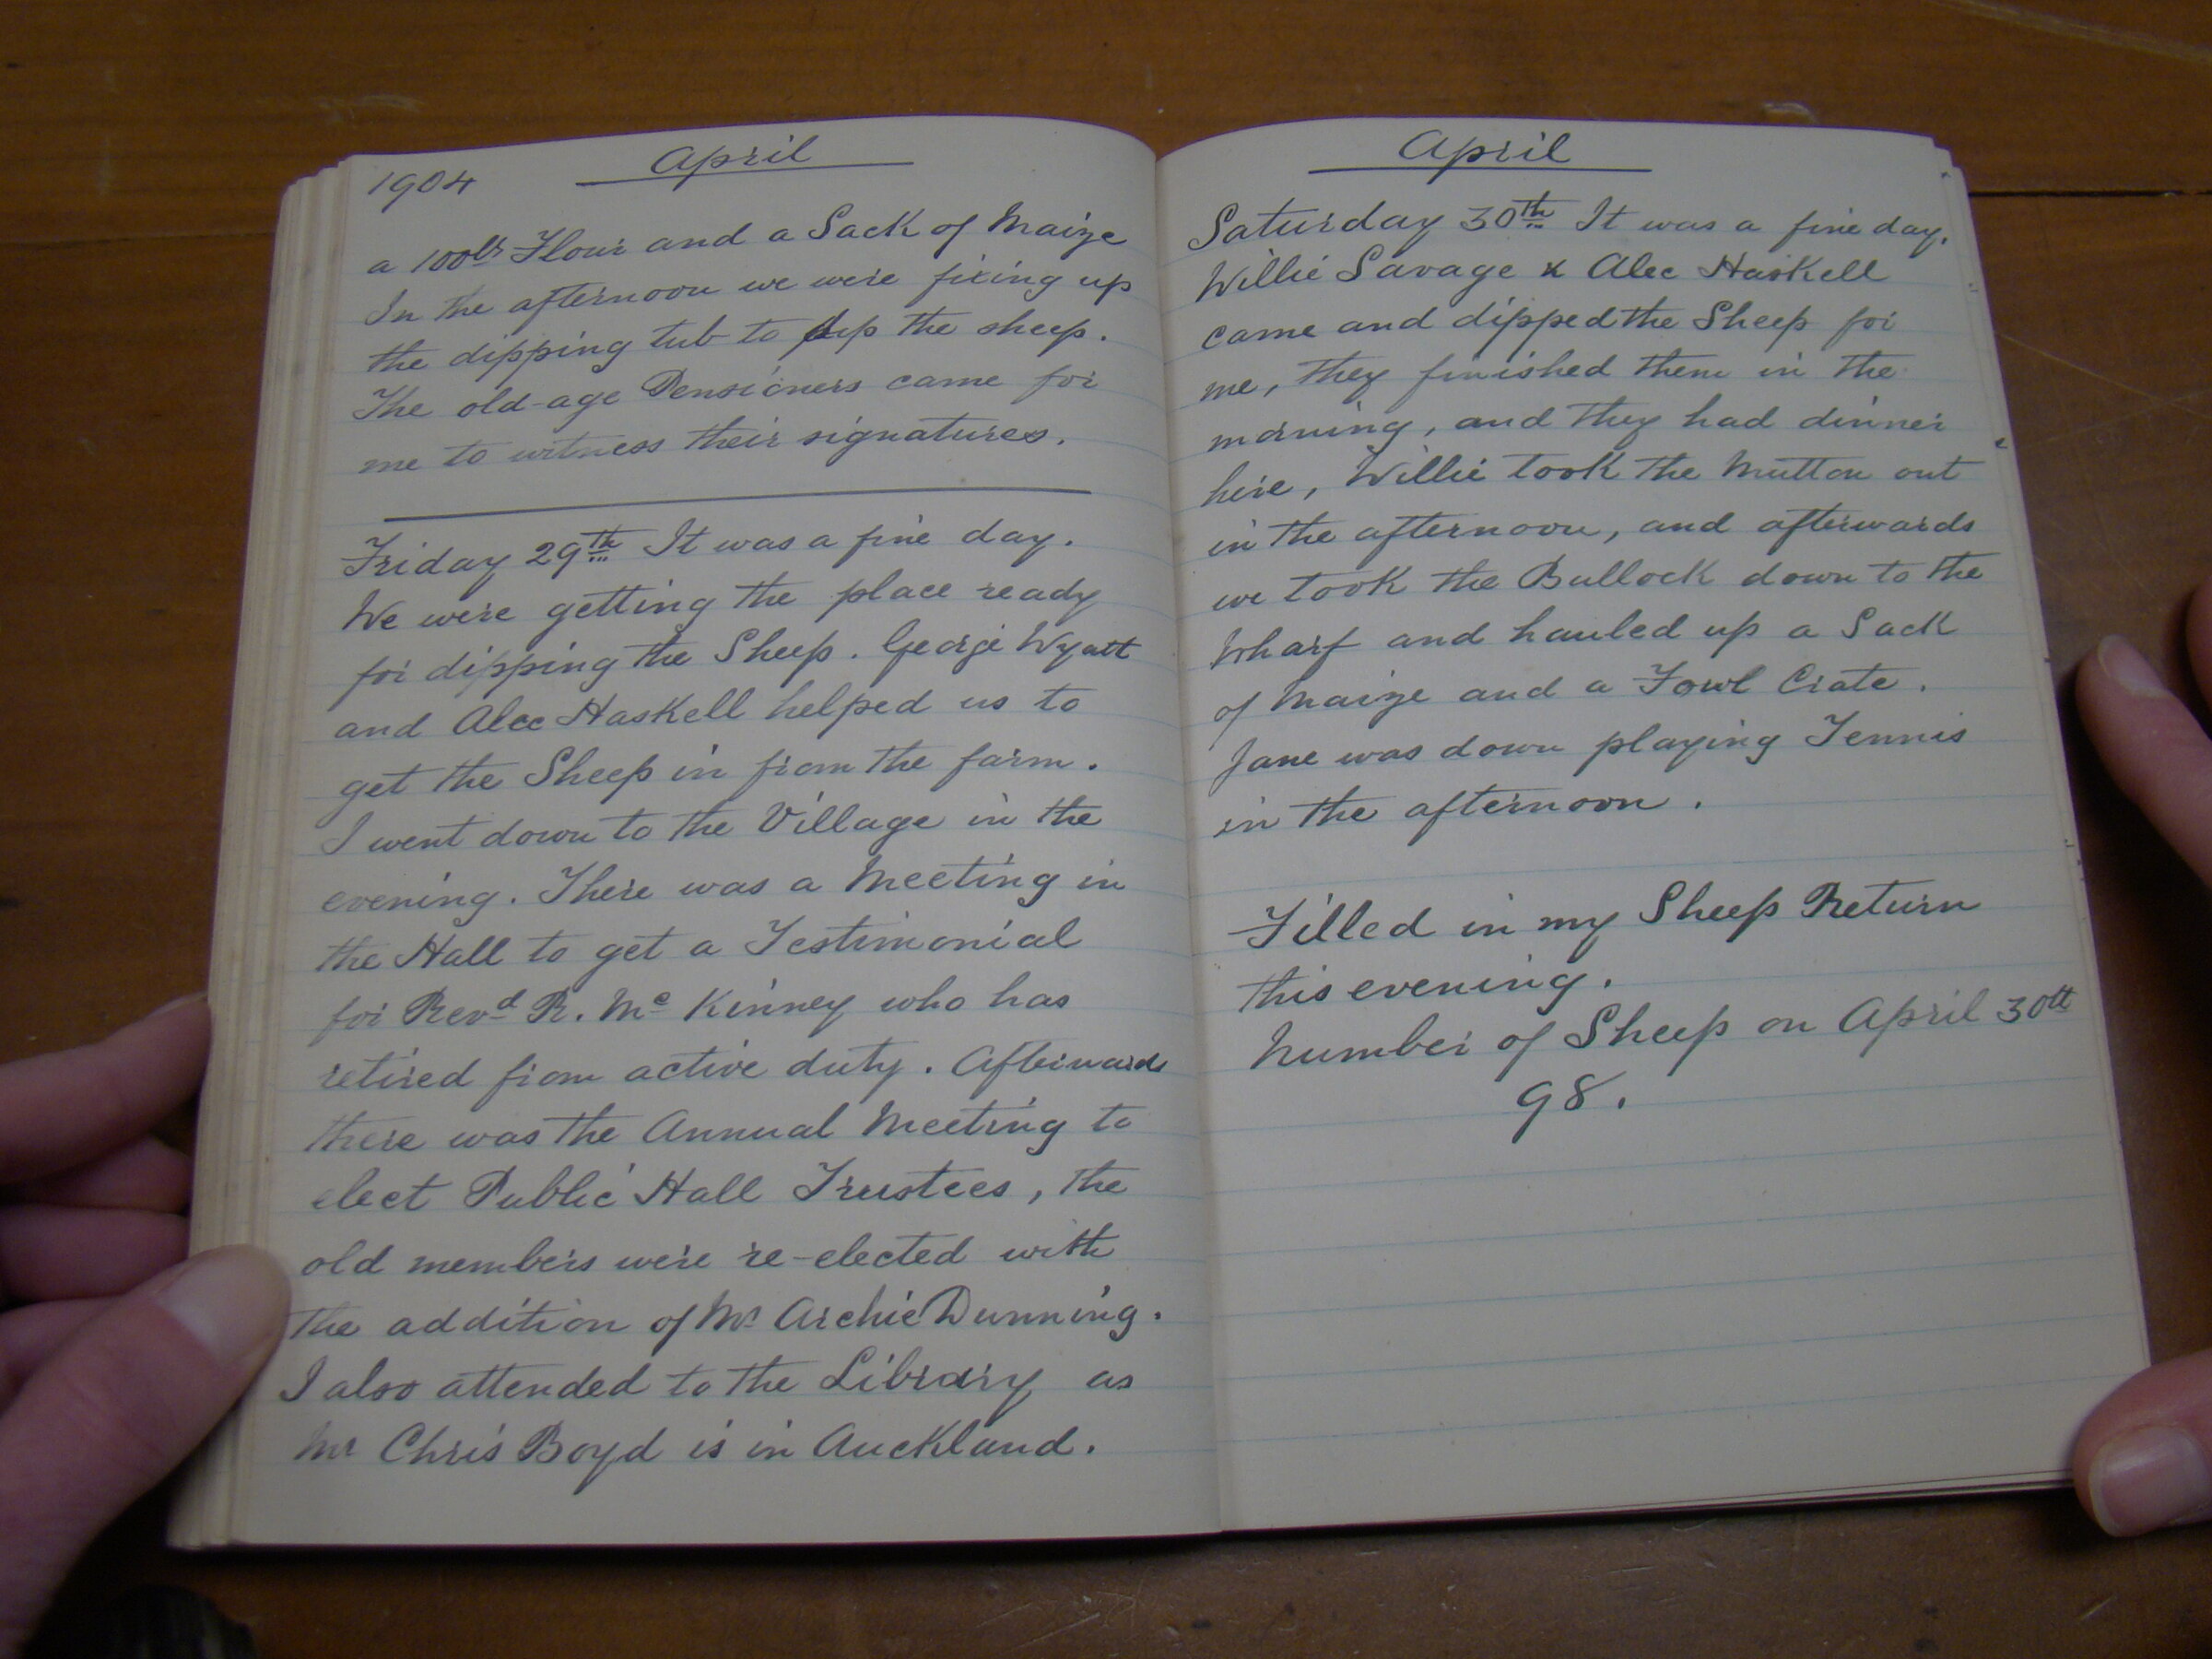 1904
April
a 100lbs Flour and a Sack of Maize
In the afternoon we were fixing up
the dipping tub to dip the sheep.
The old-age Pensioners came for
me to witness their signatures.
Friday 29th It was a fine day.
We were getting the place ready
for dipping the Sheep. George Wyatt
and Alec Haskell helped us to
get the Sheep in from the farm.
I went down to the Village in the
evening. There was a Meeting in
the Hall to get a Testimonial
for Revd R. Mc Kinney who has
retired from active duty. Afterwards
there was the Annual Meeting to
elect Public Hall Trustees, the
old members were re-elected with
the addition of Mr Archie Dunning.
I also attended to the Library as
Mr Chris Boyd is in Auckland.
April
Saturday 30th It was a fine day.
Willie Savage & Alec Haskell
came and dipped the Sheep for
me, they finished them in the
morning, and they had dinner
here, Willie took the Mutton out
in the afternoon, and afterwards
we took the Bullock down to the
Wharf and hauled up a Sack
of Maize and a Fowl Crate.
Jane was down playing Tennis
in the afternoon.
Filled in my Sheep Return
this evening.
Number of Sheep on April 30th
98.